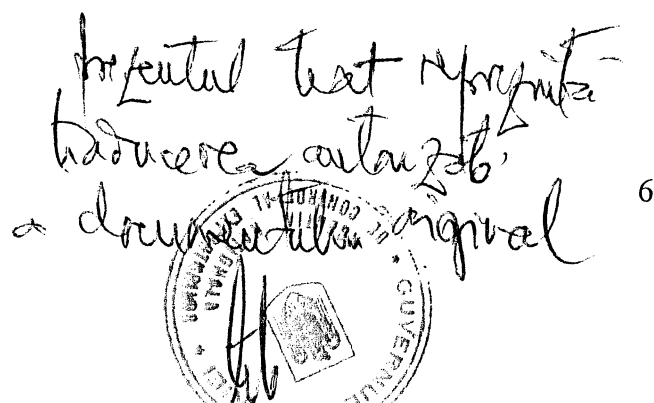 prezentul text reprezintă
traducerea autorizată
a documentului original
6
GUVERNUL